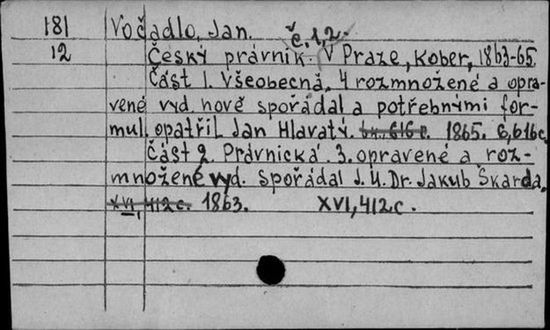 181 Vočadlo, Jan. č. 1,2.
12 Český právník. V Praze, Kober, 1863-65.
Část 1. Všeobecná. 4 rozmnožené a opra-
vené vyd. nově spořádal a potřebnými for-
mul. opatřil Jan Hlavatý. 1865. 6,616c.
Část 2. Právnická. 3. opravené a roz-
množené vyd. Spořádal J.U.Dr. Jakub Škarda.
XVI, 412 c. 1863. XVI, 412 c.